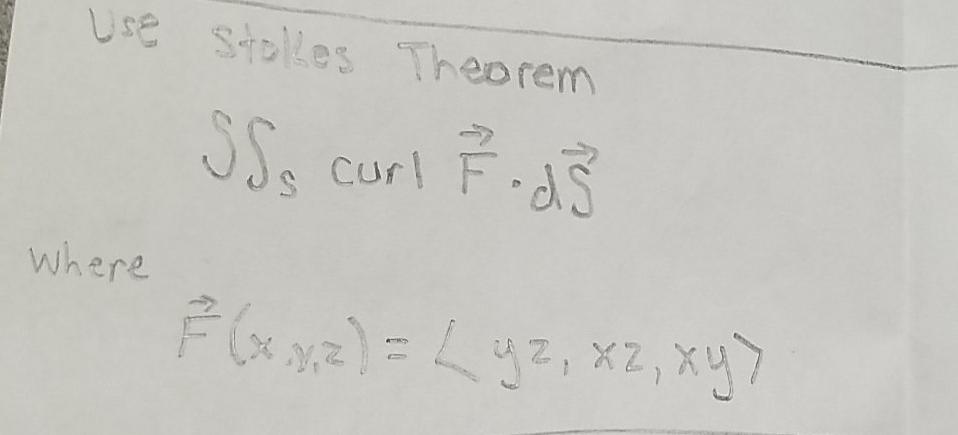 Use Stokes Theorem
∬ₛ curl F⃗ · dS⃗
Where
F⃗(x,y,z) = ⟨yz, xz, xy⟩